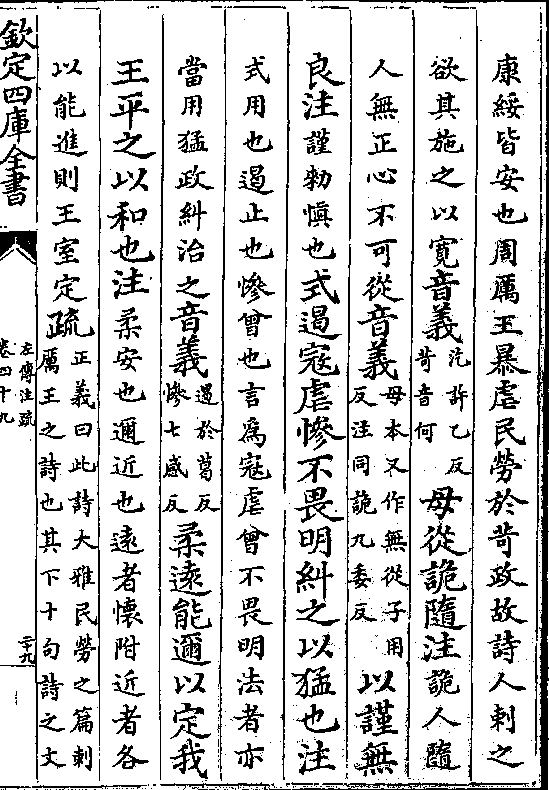 康綏皆安也周厲王暴虐民勞於苛政故詩人刺之
欲其施之以寛音義汔許乙反苛音何毋從詭隨注詭人隨
人無正心不可從音義毋本又作無從子用反注同詭九委反以謹無
良注謹勑慎也式遏寇虐慘不畏明糾之以猛也注
式用也遏止也慘曾也言為寇虐曾不畏明法者亦
當用猛政糾治之音義遏於葛反慘七感反柔遠能邇以定我
王平之以和也注柔安也邇近也遠者懷附近者各
以能進則王室定疏正義曰此詩大雅民勞之篇刺厲王之詩也其下十句詩之文
欽定四庫全書
左傳注疏
卷四十九
二十九